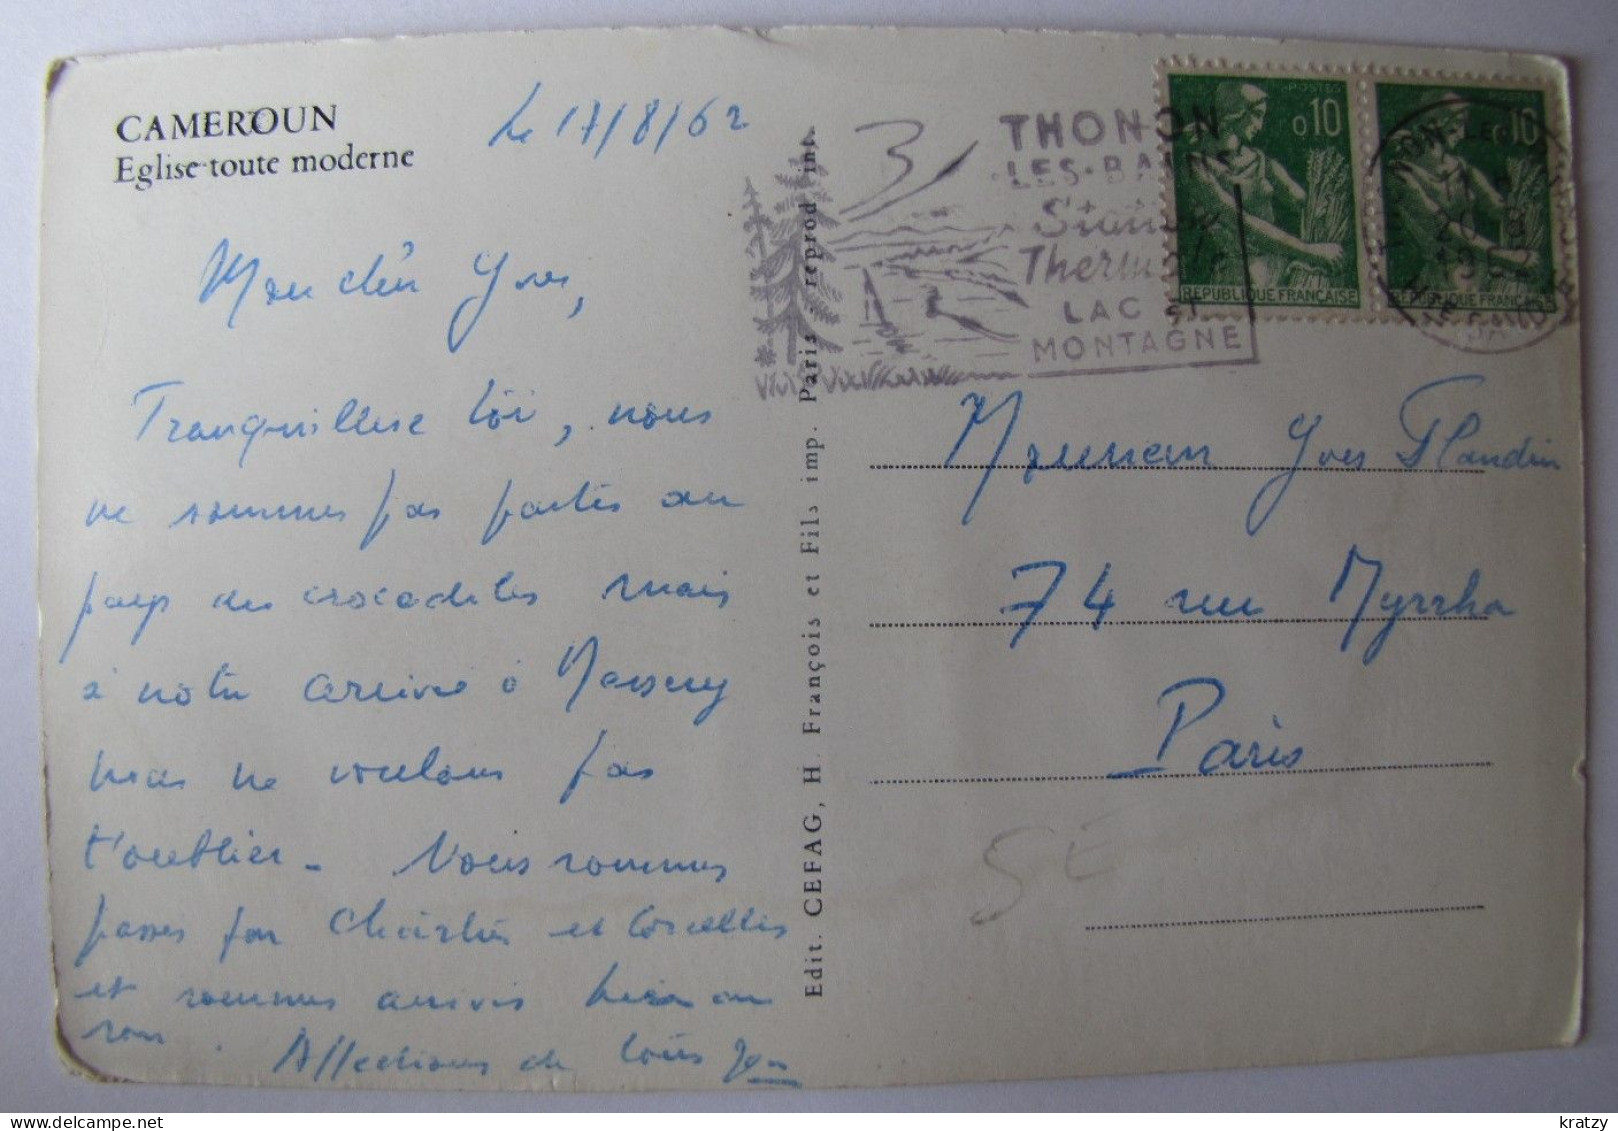 CAMEROUN
Eglise toute moderne
Le 17/8/62
Mon chér Yves,
Tranquillise toi, nous
ne sommes pas partis au
pays des crocodiles mais
à notre arrivée à
nous ne voulons pas
t'oublier - Nous sommes
passés par et
et sommes arrivés hier au
soir. Affections de tous
Edit. CEFAG, H. François et Fils imp. Paris reprod int.
THONON
-LES-BAINS
Station
Thermale
LAC ET
MONTAGNE
POSTES
0,10
REPUBLIQUE FRANÇAISE
10
REPUBLIQUE FRANÇAISE
20 8
1962
Monsieur Yves Flandin
74 rue Myrrha
Paris
5E
kratzy